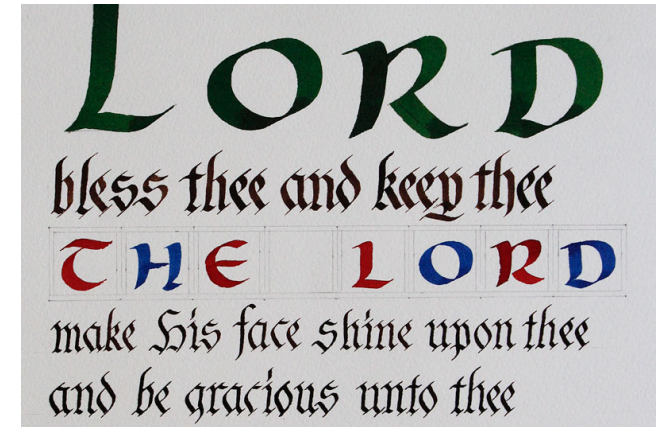 LORD
bless thee and keep thee
THE LORD
make His face shine upon thee
and be gracious unto thee